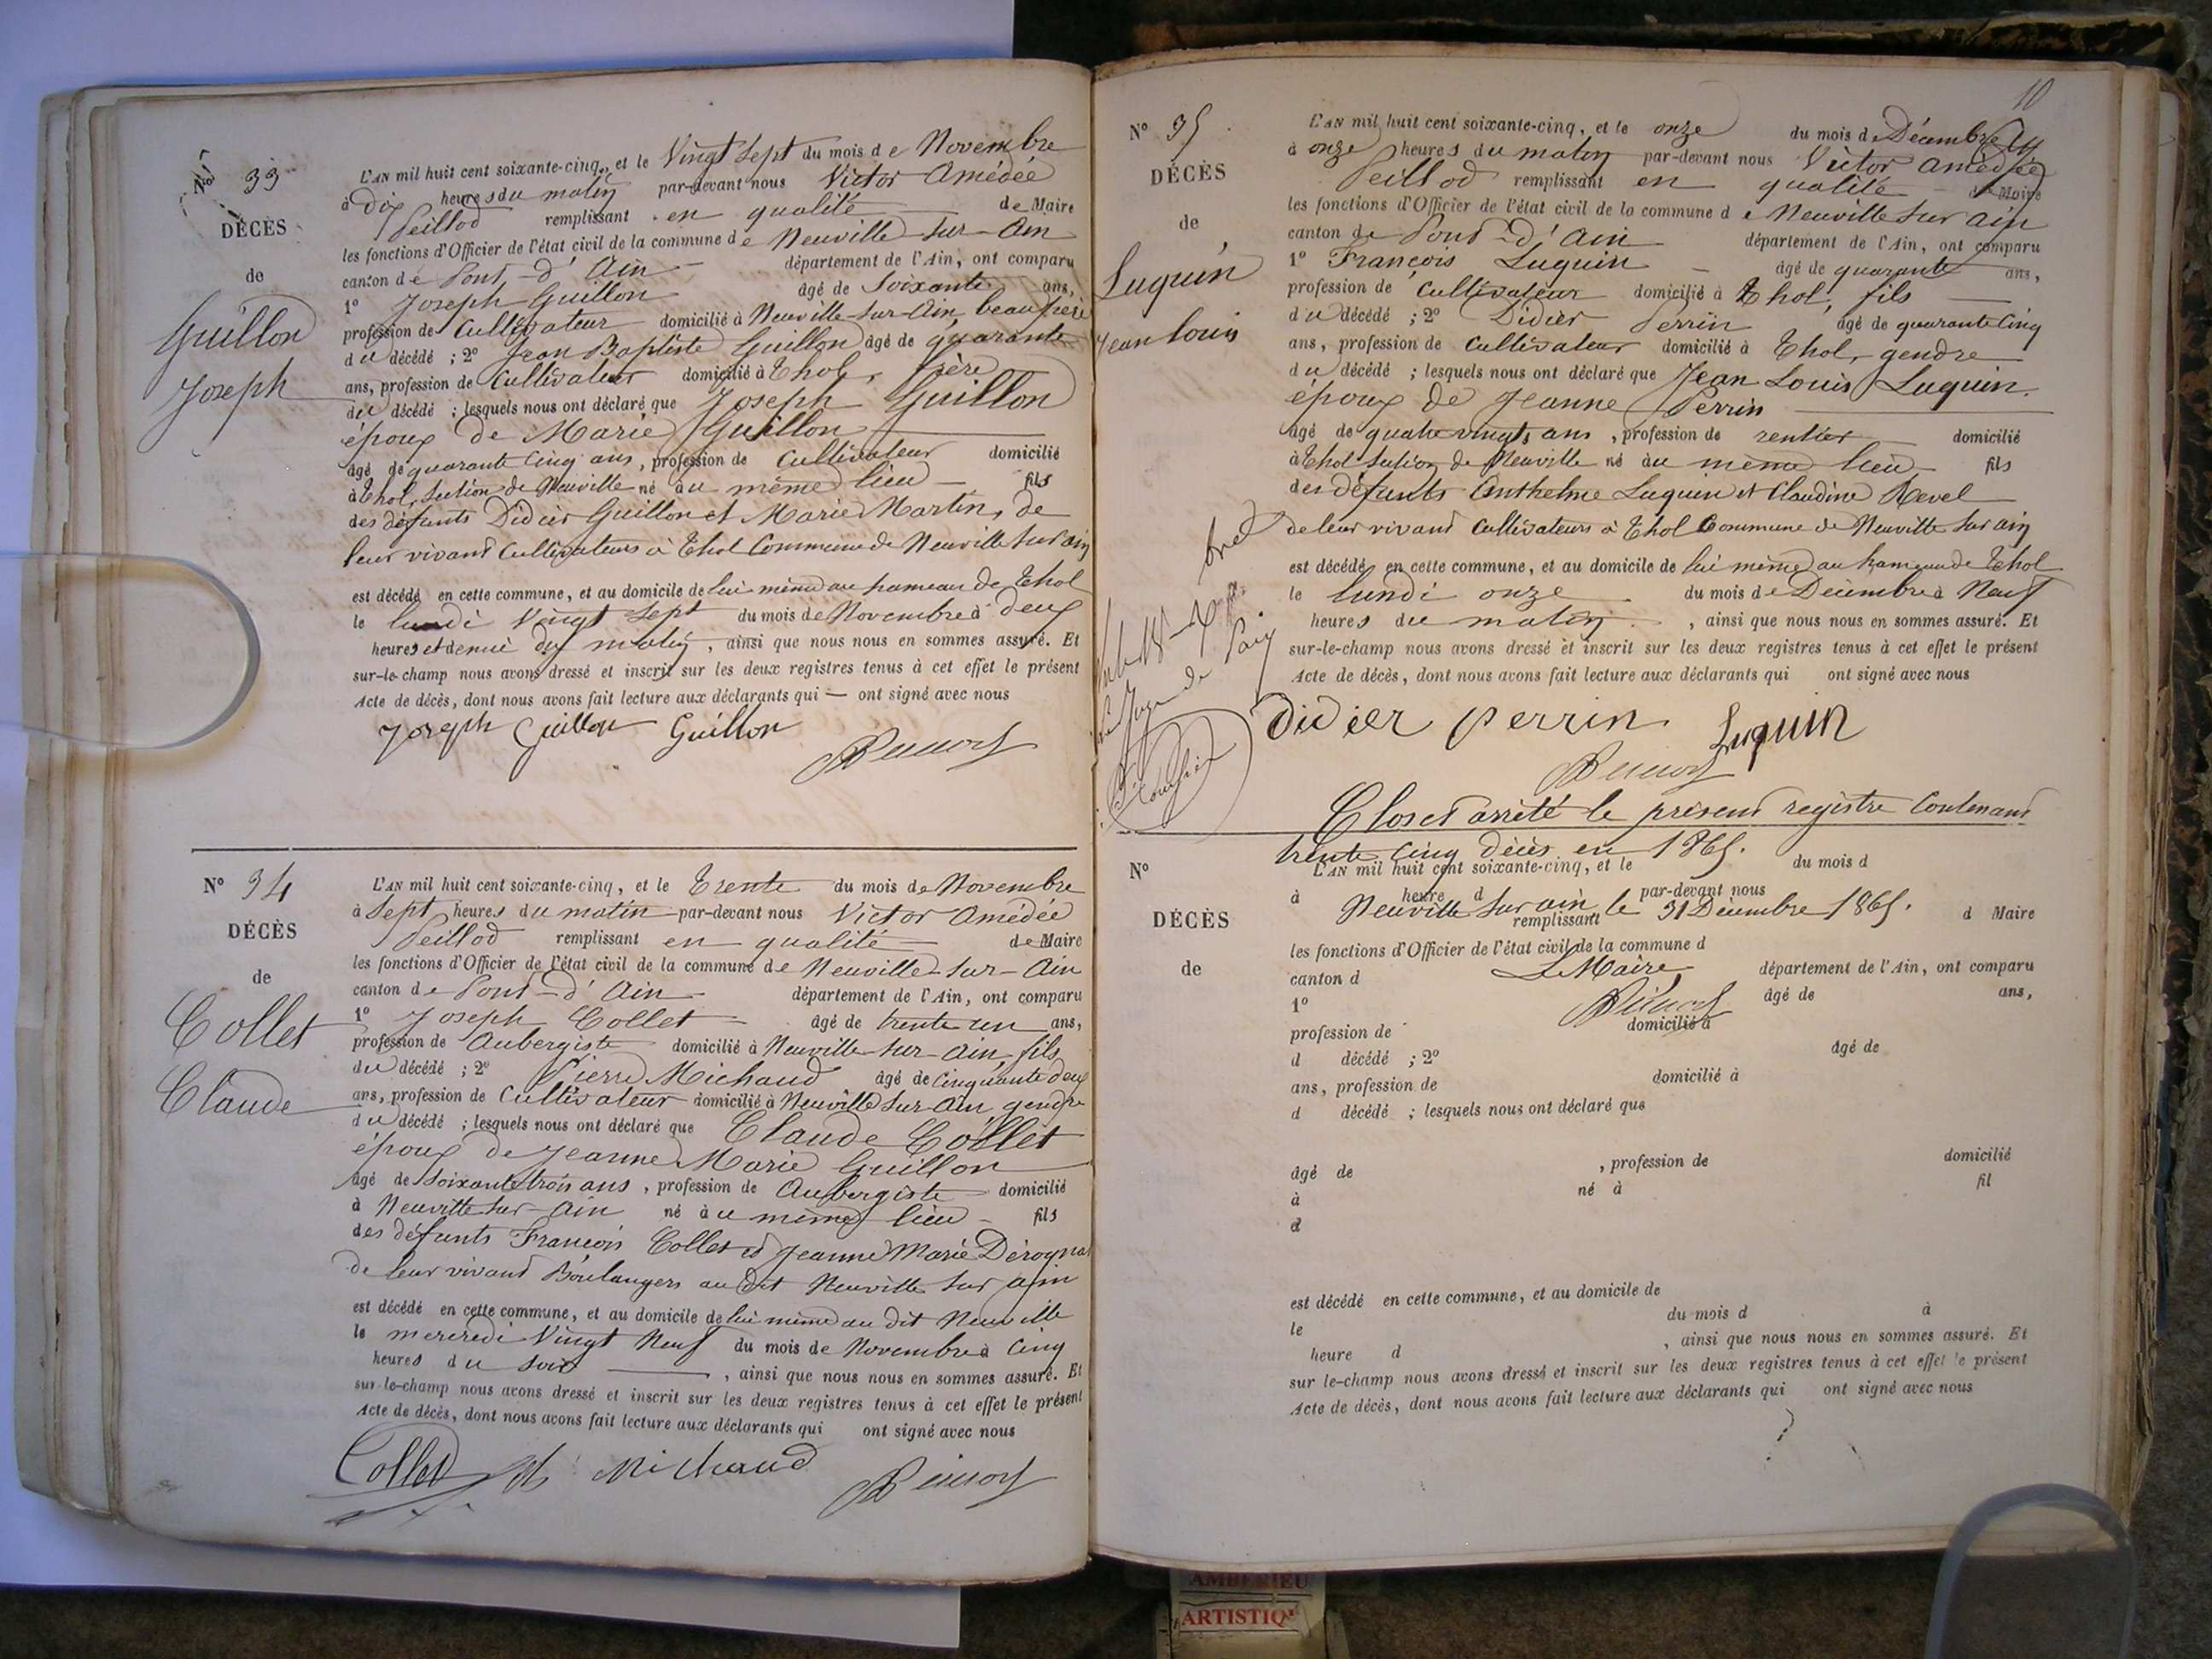 Nº 33
DÉCÈS
de
Guillon
Joseph
L'AN mil huit cent soixante-cinq, et le Vingt Sept du mois de Novembre
à Dix heures du matin par-devant nous Victor Amédée
Peillod remplissant en qualité de Maire
les fonctions d'Officier de l'état civil de la commune de Neuville-sur-Ain
canton de Pont-d'Ain département de l'Ain, ont comparu
1º Joseph Guillon âgé de Soixante ans,
profession de Cultivateur domicilié à Neuville-sur-Ain, beau frère
du décédé ; 2º Jean Baptiste Guillon âgé de quarante
ans, profession de Cultivateur domicilié à Thol, frère
du décédé ; lesquels nous ont déclaré que Joseph Guillon
époux de Marie Guillon
âgé de quarante cinq ans, profession de Cultivateur domicilié
à Thol, Section de Neuville né au même lieu fils
des défunts Didier Guillon et Marie Martin, de
leur vivant Cultivateurs à Thol Commune de Neuville sur ain
est décédé en cette commune, et au domicile de lui même au hameau de Thol
le lundi Vingt Sept du mois de Novembre à deux
heures et demie du matin, ainsi que nous nous en sommes assuré. Et
sur-le-champ nous avons dressé et inscrit sur les deux registres tenus à cet effet le présent
Acte de décès, dont nous avons fait lecture aux déclarants qui — ont signé avec nous
Joseph Guillon Guillon
Nº 34
DÉCÈS
de
Collet
Claude
L'AN mil huit cent soixante-cinq, et le Trente du mois de Novembre
à Sept heures du matin par-devant nous Victor Amédée
Peillod remplissant en qualité de Maire
les fonctions d'Officier de l'état civil de la commune de Neuville-sur-Ain
canton de Pont-d'Ain département de l'Ain, ont comparu
1º Joseph Collet âgé de trente un ans,
profession de Aubergiste domicilié à Neuville-sur-Ain, fils
du décédé ; 2º Pierre Michaud âgé de Cinquante deux
ans, profession de Cultivateur domicilié à Neuville sur Ain, gendre
du décédé ; lesquels nous ont déclaré que Claude Collet
époux de Jeanne Marie Guillon
âgé de Soixante trois ans, profession de Aubergiste domicilié
à Neuville sur-Ain né au même lieu fils
des défunts François Collet et Jeanne Marie
de leur vivant Boulangers au dit Neuville sur ain
est décédé en cette commune, et au domicile de lui même au dit Neuville
le mercredi Vingt Neuf du mois de Novembre à Cinq
heures du soir, ainsi que nous nous en sommes assuré. Et
sur-le-champ nous avons dressé et inscrit sur les deux registres tenus à cet effet le présent
Acte de décès, dont nous avons fait lecture aux déclarants qui ont signé avec nous
Collet Michaud
10
Nº 35
DÉCÈS
de
Luquin
Jean louis
L'AN mil huit cent soixante-cinq, et le onze du mois de Décembre
à onze heures du matin par-devant nous Victor Amédée
Peillod remplissant en qualité de Maire
les fonctions d'Officier de l'état civil de la commune de Neuville sur ain
canton de Pont-d'Ain département de l'Ain, ont comparu
1º François Luquin âgé de quarante ans,
profession de Cultivateur domicilié à Thol, fils
du décédé ; 2º Didier Perrin âgé de quarante Cinq
ans, profession de Cultivateur domicilié à Thol, gendre
du décédé ; lesquels nous ont déclaré que Jean Louis Luquin.
époux de Jeanne Perrin
âgé de quatre vingts ans, profession de rentier domicilié
à Thol Section de Neuville né au même lieu fils
des défunts Anthelme Luquin et Claudine Revel
de leur vivant Cultivateurs à Thol Commune de Neuville sur ain
est décédé en cette commune, et au domicile de lui même au hameau de Thol
le lundi onze du mois de Décembre à Neuf
heures du matin, ainsi que nous nous en sommes assuré. Et
sur-le-champ nous avons dressé et inscrit sur les deux registres tenus à cet effet le présent
Acte de décès, dont nous avons fait lecture aux déclarants qui ont signé avec nous
Didier perrin Luquin
Clos et arrêté le présent registre Contenant
trente Cinq décès en 1865.
Neuville sur ain le 31 Décembre 1865.
Le Maire
Nº
DÉCÈS
de
L'AN mil huit cent soixante-cinq, et le du mois d
à heure d par-devant nous
remplissant d Maire
les fonctions d'Officier de l'état civil de la commune d
canton d département de l'Ain, ont comparu
1º âgé de ans,
profession de domicilié à
d décédé ; 2º âgé de
ans, profession de domicilié à
d décédé ; lesquels nous ont déclaré que
âgé de , profession de domicilié
à né à fil
d
est décédé en cette commune, et au domicile de
le du mois d à
heure d , ainsi que nous nous en sommes assuré. Et
sur le-champ nous avons dressé et inscrit sur les deux registres tenus à cet effet le présent
Acte de décès, dont nous avons fait lecture aux déclarants qui ont signé avec nous
AMBERIEU
ARTISTIQ